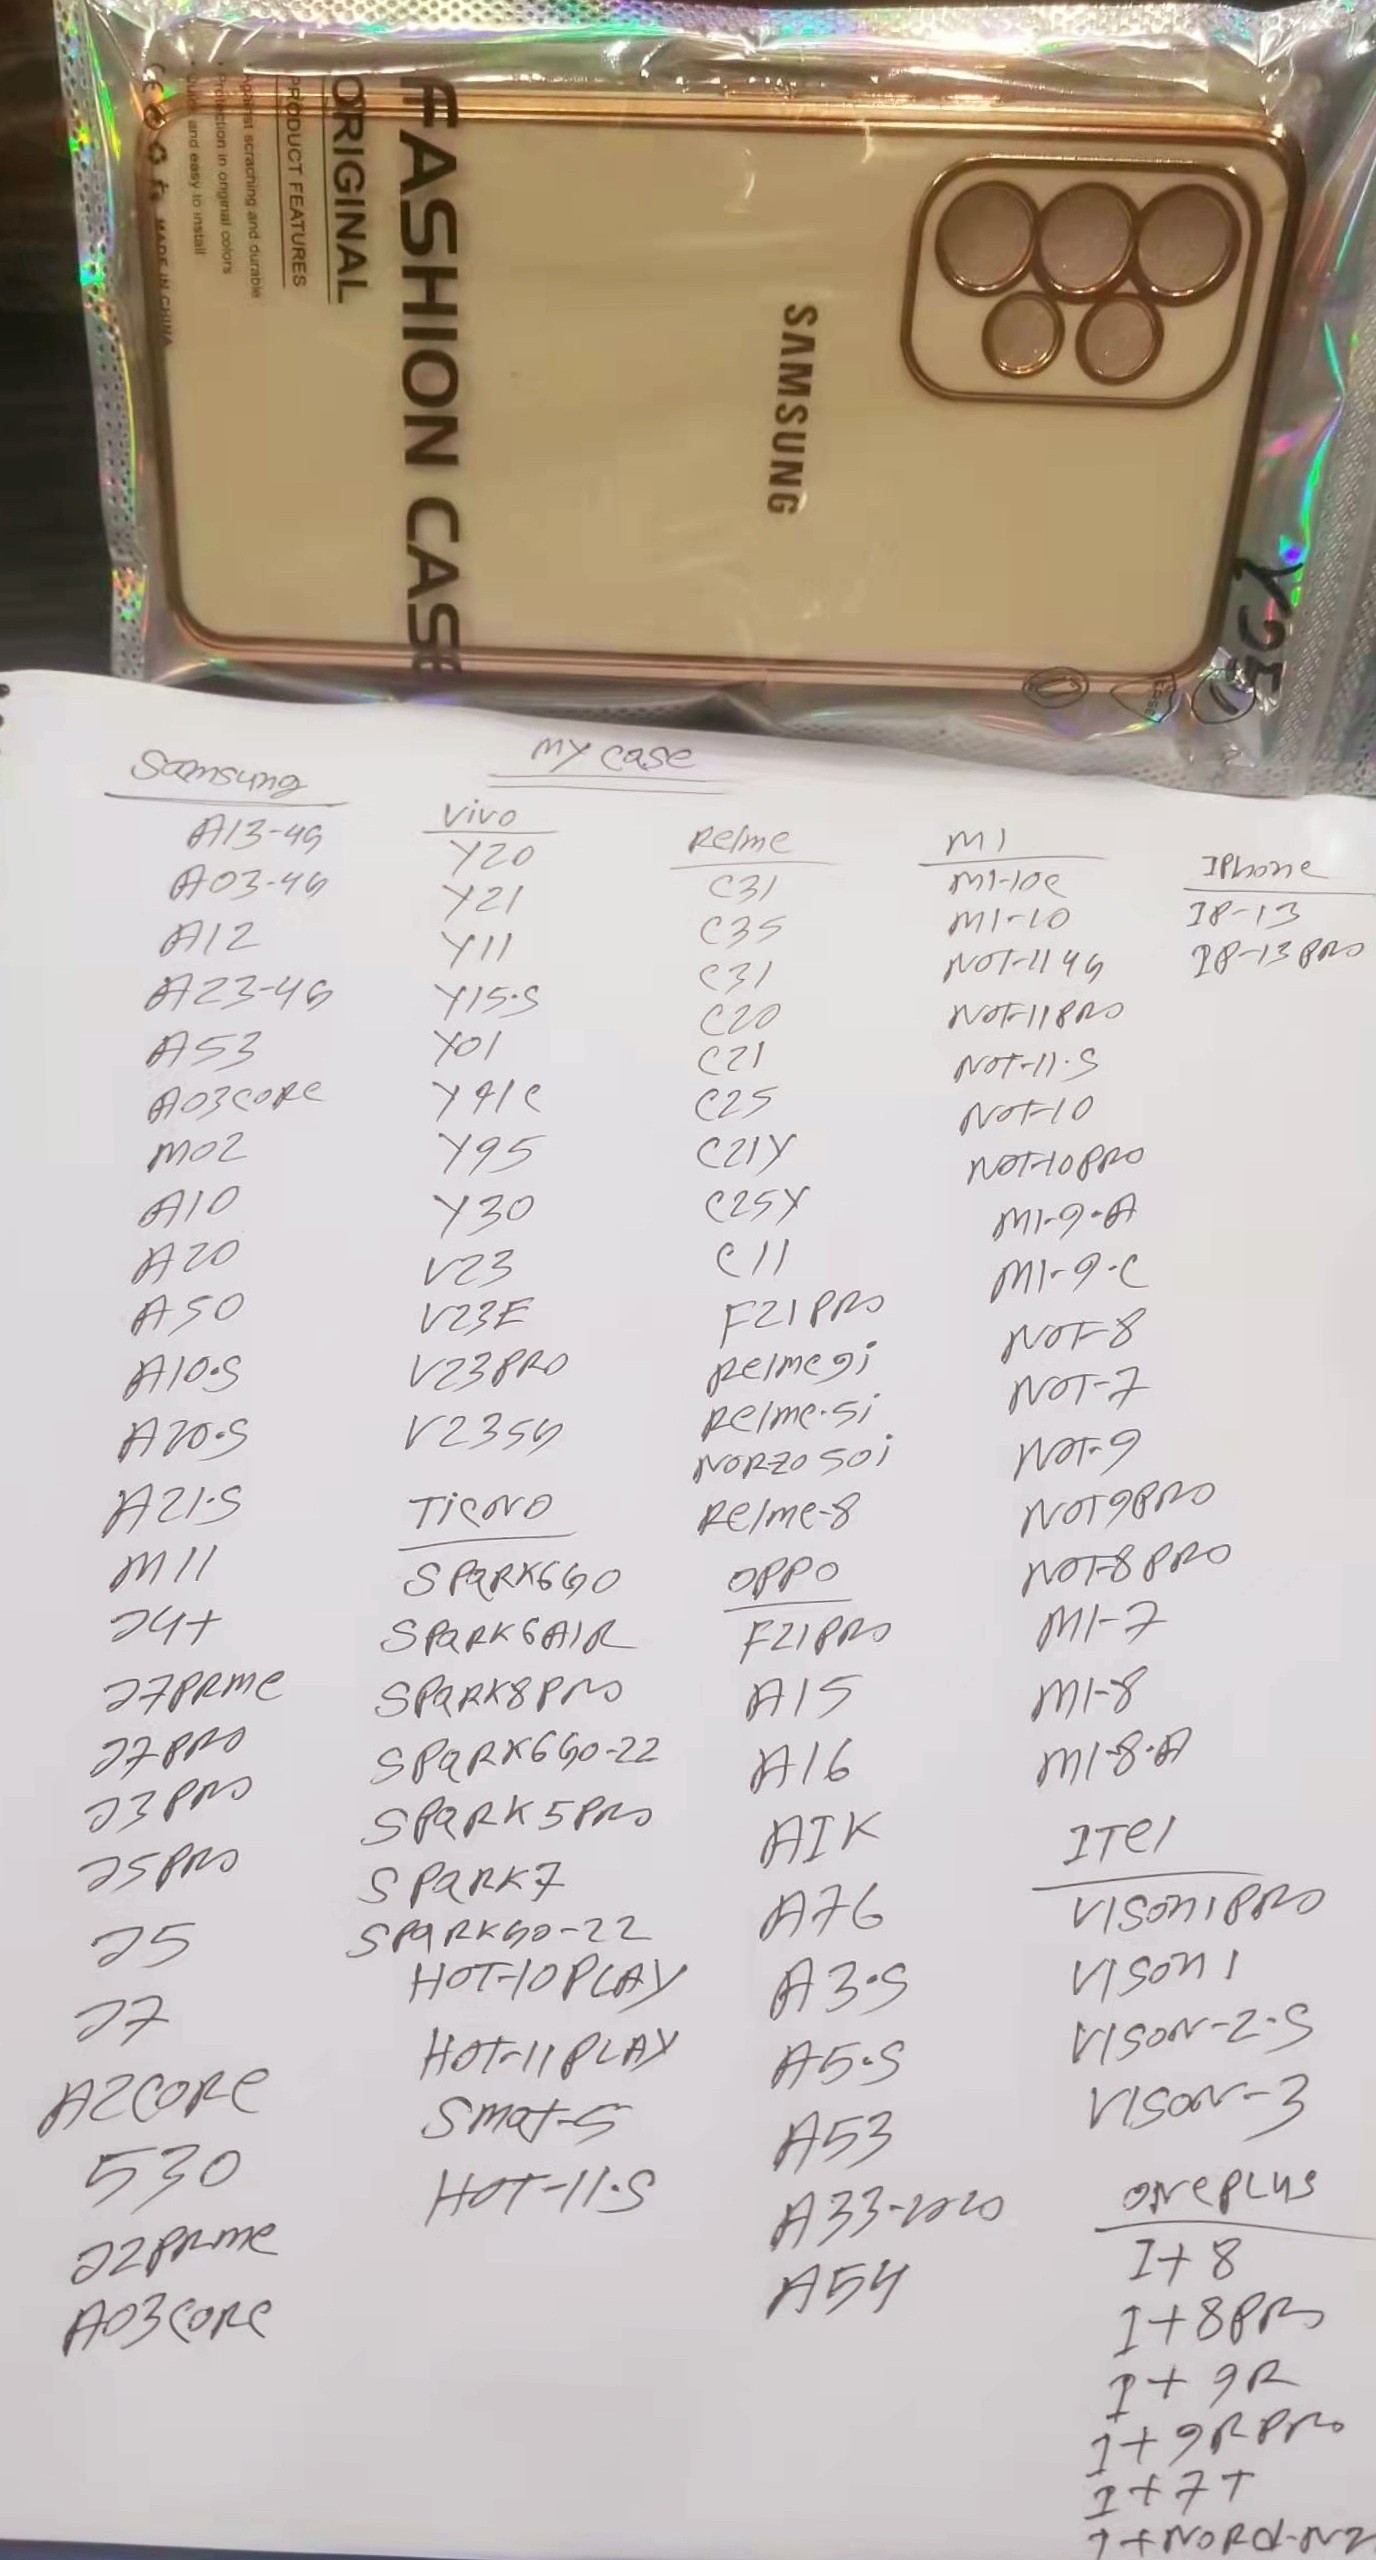 FASHION CASE
ORIGINAL
PRODUCT FEATURES
scraching and durable
Protection in original colors
and easy to install
MADE IN CHINA
SAMSUNG
my case
Samsung
A13-4G
A03-4G
A12
A23-4G
A53
A03CORE
M02
A10
A20
A50
A10.S
A20.S
A21.S
M11
J4+
J7PRME
J7PRO
J3PRO
J5PRO
J5
J7
A2CORE
530
J2PRME
A03CORE
VIVO
Y20
Y21
Y11
Y15.S
Y01
Y91C
Y95
Y30
V23
V23E
V23PRO
V235G
Ticono
SPARK6GO
SPARK6AIR
SPARK8PRO
SPARK6GO-22
SPARK5PRO
SPARK7
SPARKGO-22
HOT-10PLAY
HOT-11PLAY
Smat-5
HOT-11.S
Relme
C31
C35
C31
C20
C21
C25
C21Y
C25Y
C11
F21PRO
Relme9i
Relme.5i
NORZO50i
Relme-8
OPPO
F21PRO
A15
A16
A1K
A76
A3.S
A5.S
A53
A33-2020
A54
M1
M1-10C
M1-10
NOT-114G
NOT-11PRO
NOT-11.S
NOT-10
NOT-10PRO
M1-9.A
M1-9.C
NOT-8
NOT-7
NOT-9
NOT9PRO
NOT-8PRO
M1-7
M1-8
M1-8.A
ITel
VISON1PRO
VISON1
VISON-2.S
VISON-3
ONEPLUS
1+8
1+8PRO
1+9R
1+9RPRO
1+7T
1+NORD-N2
IPhone
IP-13
IP-13PRO